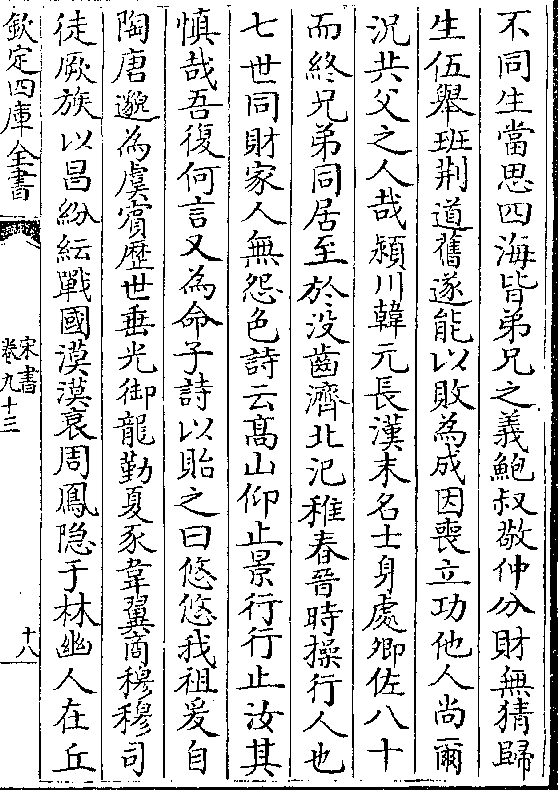 不同生當思四海皆弟兄之義鮑叔敬仲分財無猜歸
生伍舉班荆道舊遂能以敗為成因喪立功他人尚爾
況共父之人哉潁川韓元長漢末名士身處卿佐八十
而終兄弟同居至於没齒濟北氾稚春晉時操行人也
七世同財家人無怨色詩云髙山仰止景行行止汝其
慎哉吾復何言又為命子詩以貽之曰悠悠我祖爰自
陶唐邈為虞賓歷世垂光御龍勤夏豕韋翼商穆穆司
徒厥族以昌紛紜戰國漠漠衰周鳳隐于林幽人在丘
欽定四庫全書
宋書
卷九十三
十八